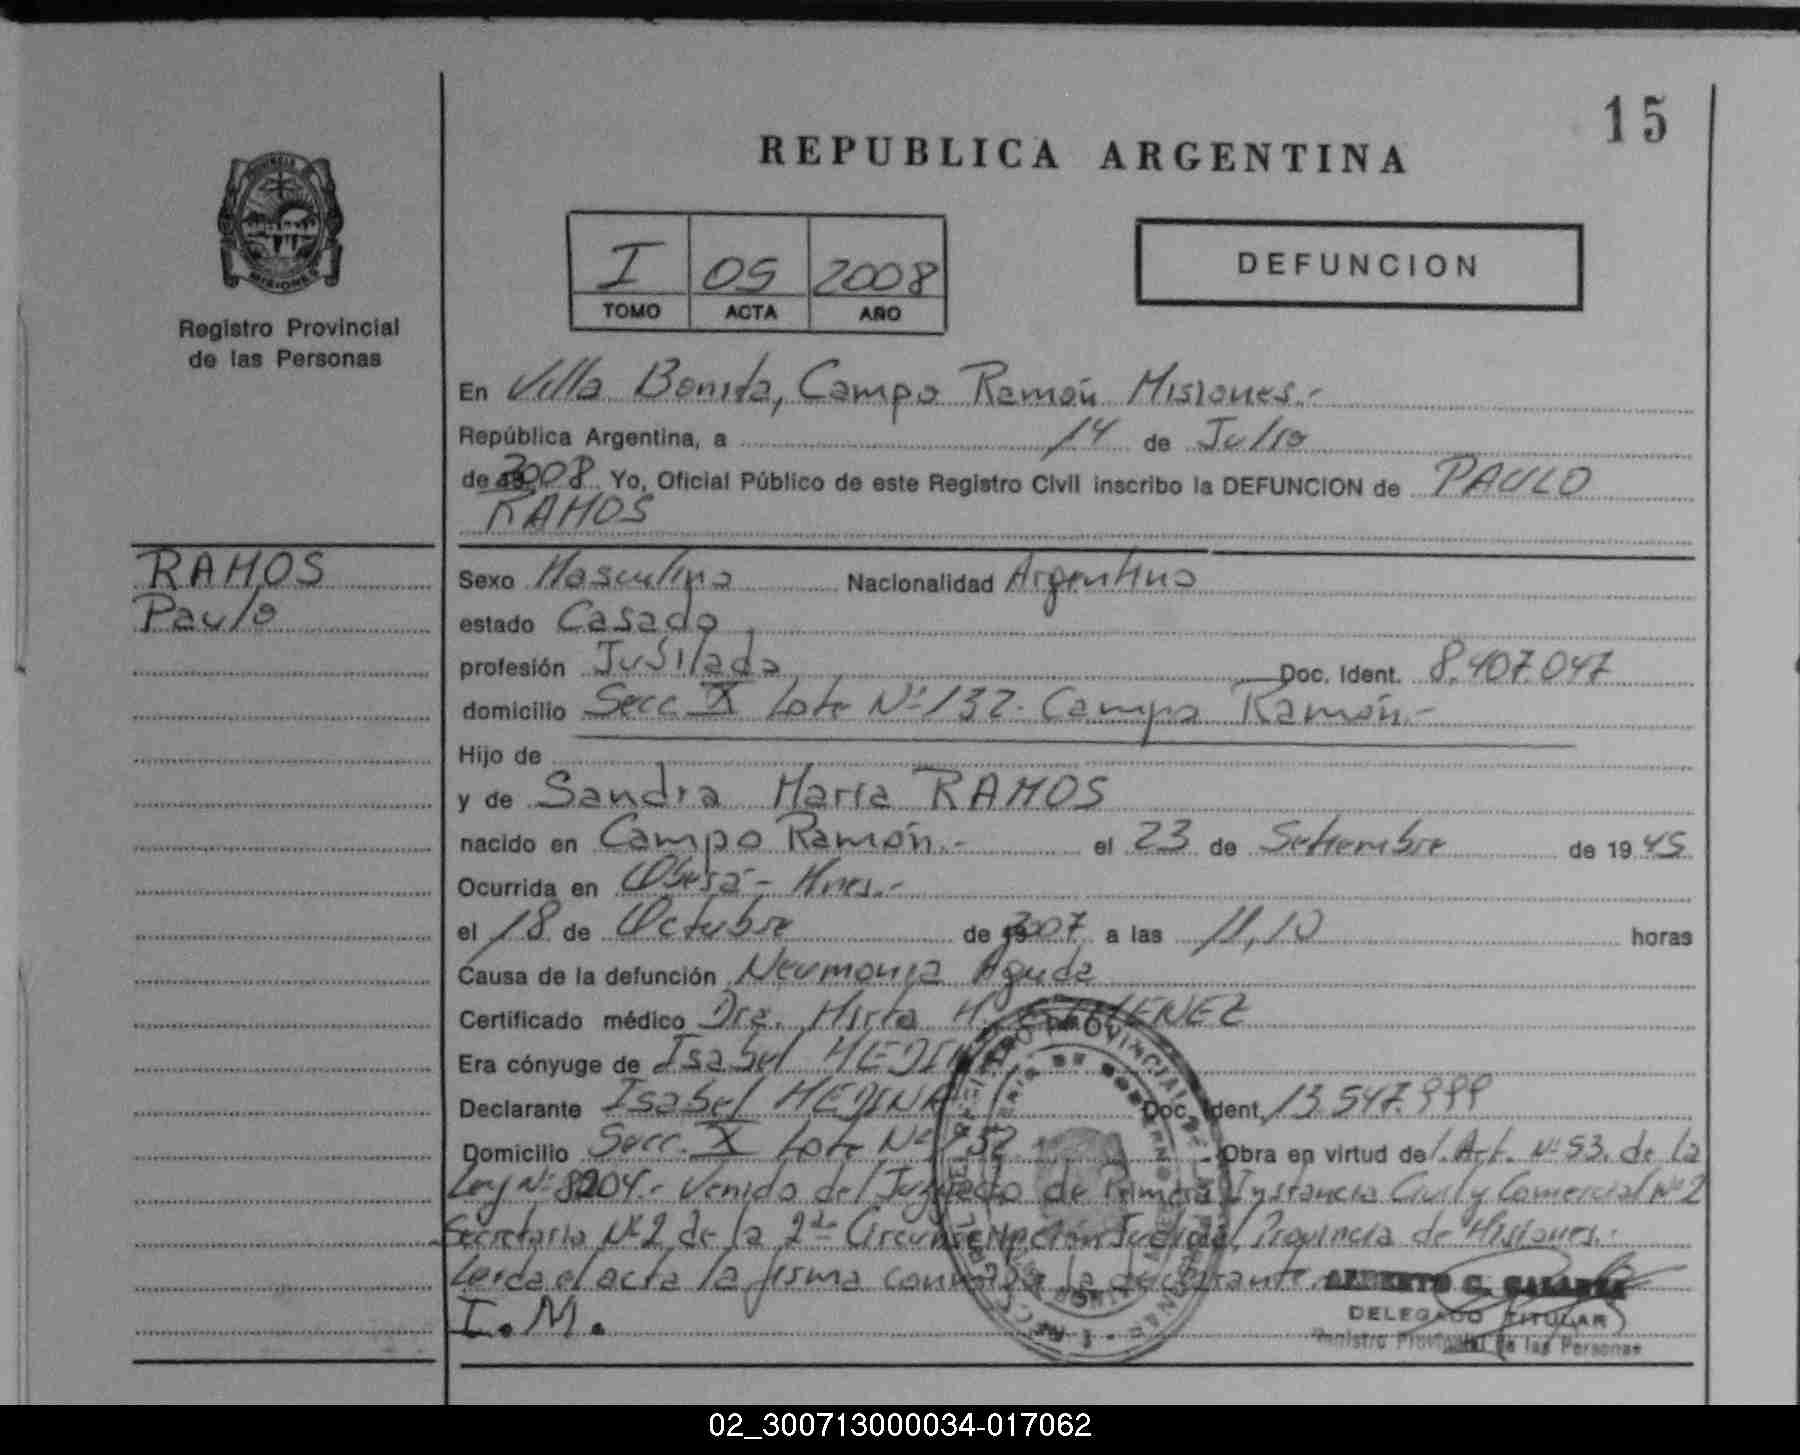 15
REPUBLICA ARGENTINA
PROVINCIA
MISIONES
Registro Provincial
de las Personas
I 05 2008
TOMO ACTA AÑO
DEFUNCION
En Villa Bonita, Campo Ramón Misiones.-
República Argentina, a 14 de Julio
de 2008 Yo, Oficial Público de este Registro Civil inscribo la DEFUNCION de PAULO
RAMOS
RAMOS
Paulo
Sexo Masculino Nacionalidad Argentino
estado Casado
profesión Jubilado Doc. Ident. 8.407.047
domicilio Secc. X Lote Nº 132. Campo Ramón.-
Hijo de
y de Sandra Maria RAMOS
nacido en Campo Ramón.- el 23 de Setiembre de 1945
Ocurrida en Oberá - Mnes.-
el 18 de Octubre de 2007 a las 11,10 horas
Causa de la defunción Neumonia Aguda
Certificado médico Dra. Mirta H.
Era cónyuge de Isabel MEDINA
Declarante Isabel MEDINA Doc. Ident. 13.547.999
Domicilio Secc. X Lote Nº 132 Obra en virtud del Art. Nº 53. de la
Ley Nº 8204.- Venido del Juzgado de Primera Instancia Civil y Comercial Nº 2
Secretaria Nº 2 de la 2da Circunscripción Judicial, Provincia de Misiones.-
Leida el acta la firma conmigo la declarante.
I. M.
ALBERTO G. GALARZA
DELEGADO TITULAR
Registro Provincial de las Personas
02_300713000034-017062